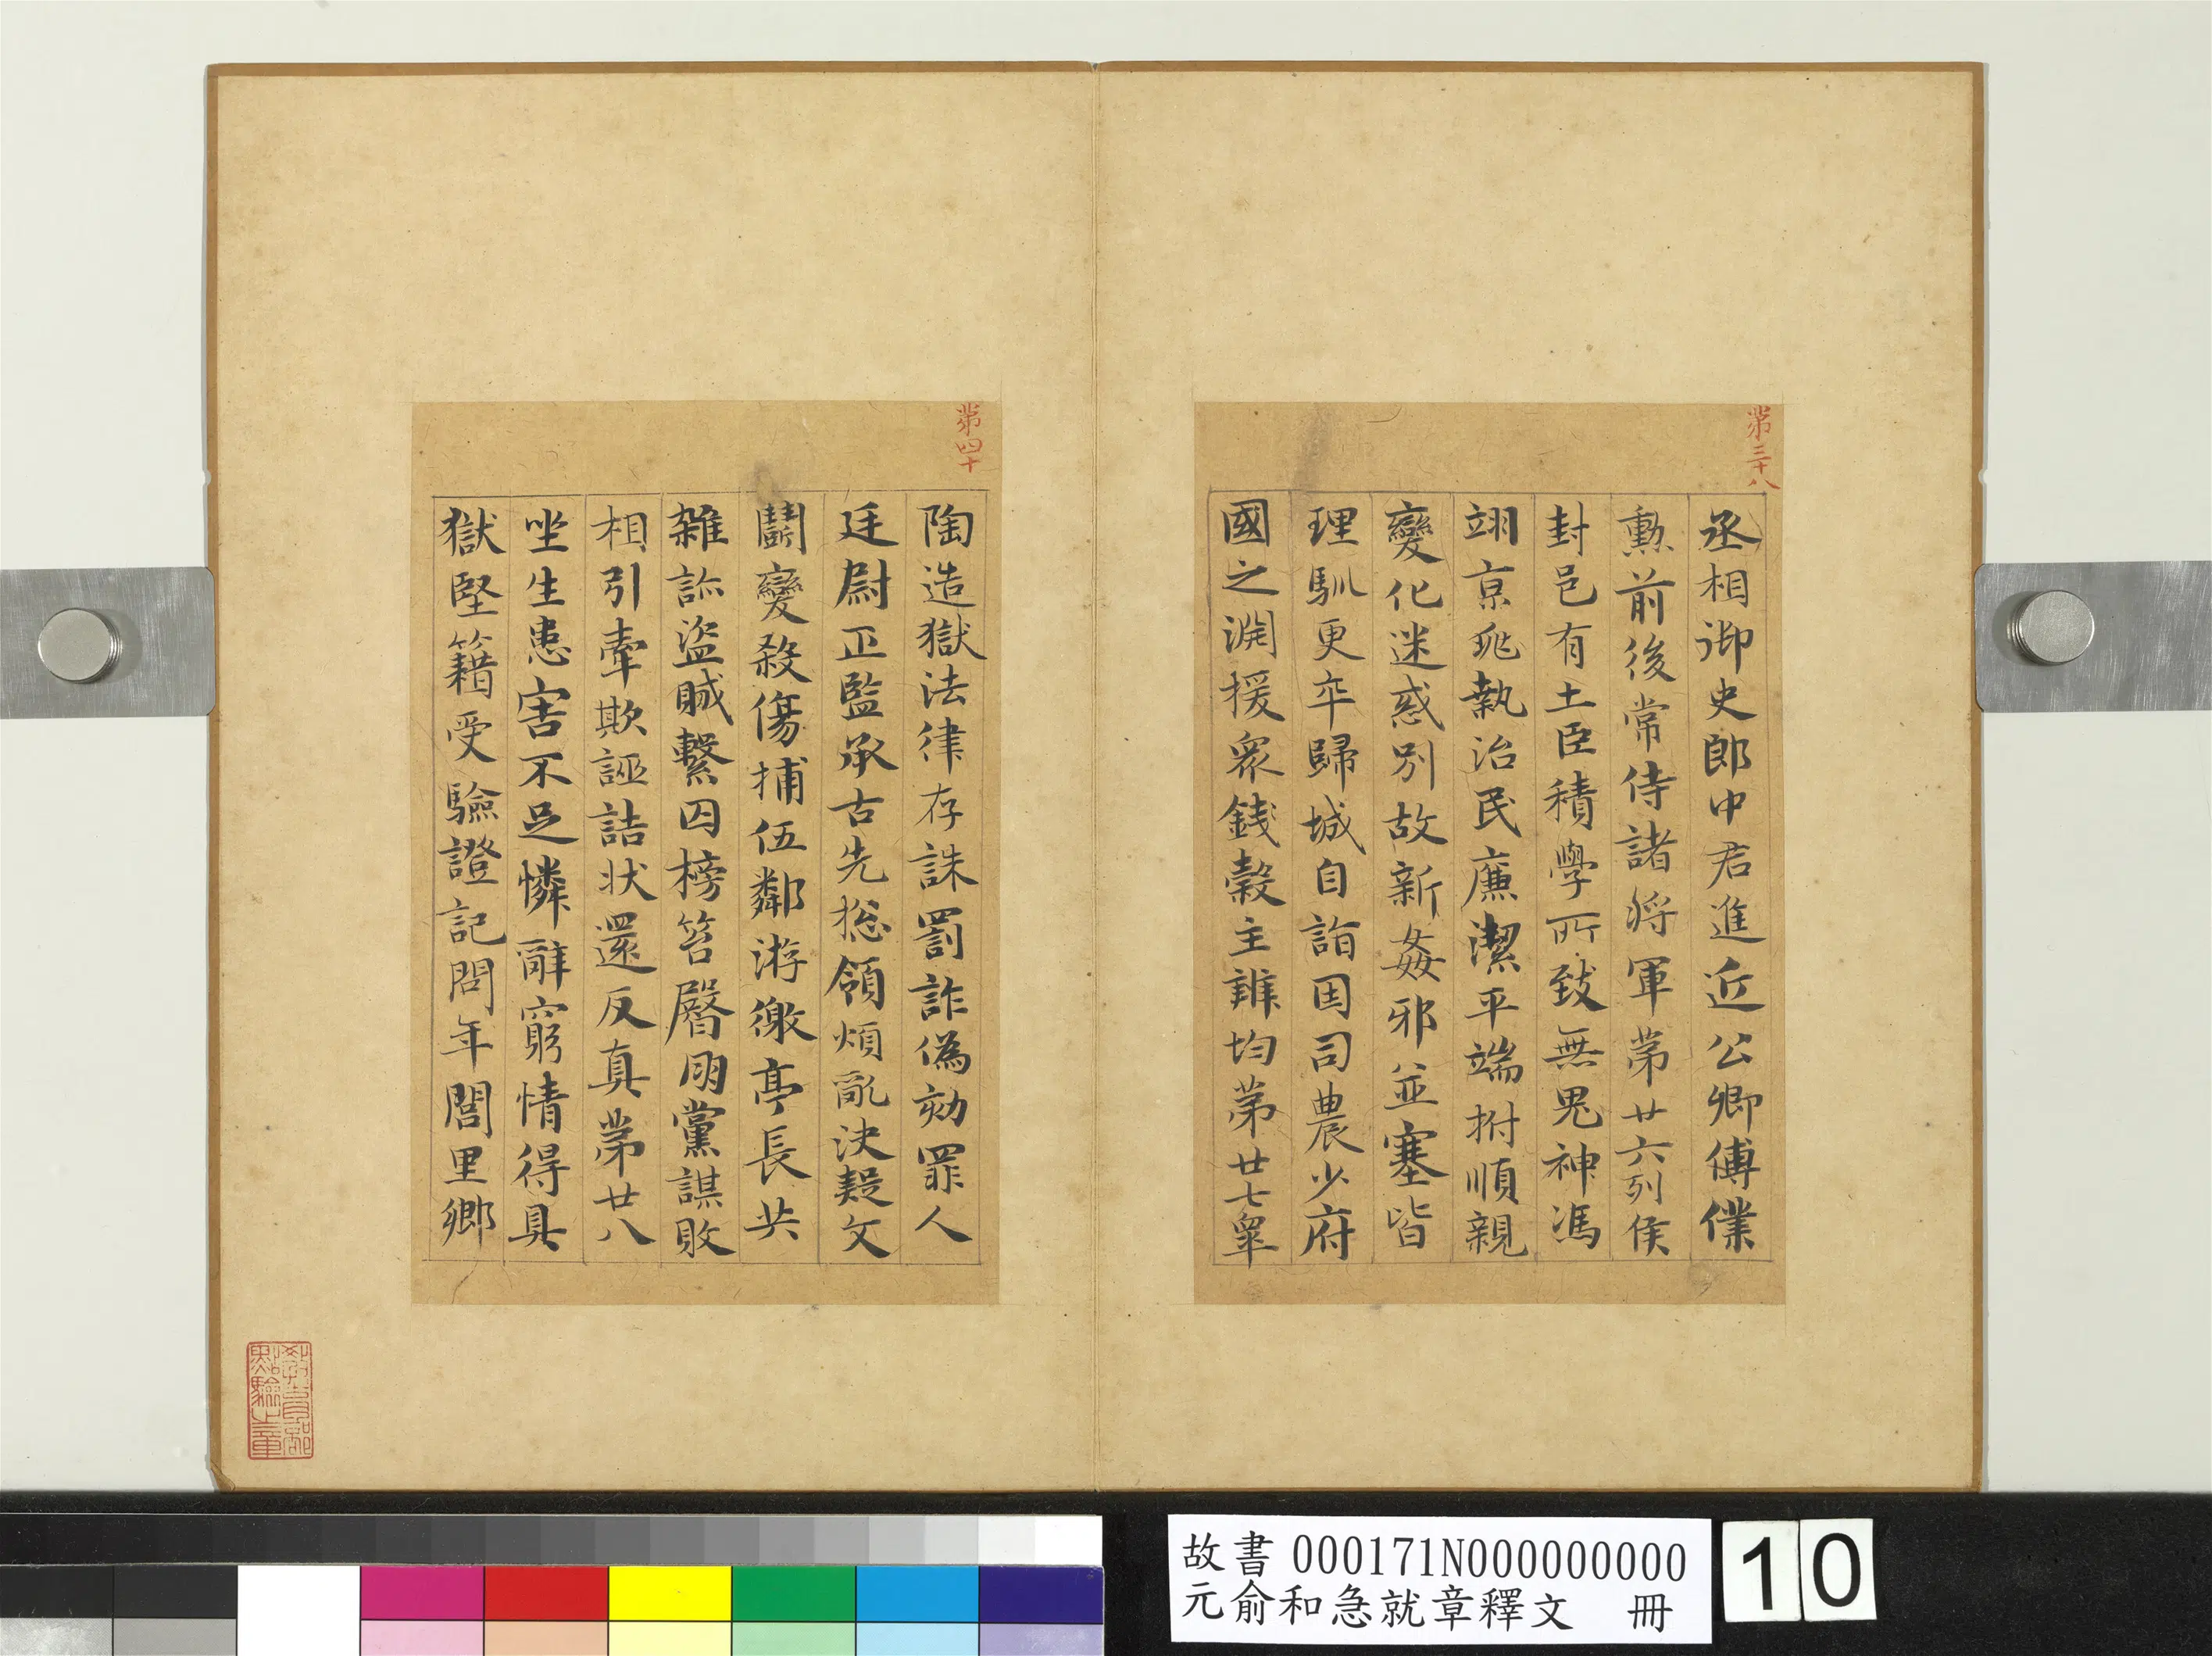 第三十八
丞相御史郎中君進近公卿傅僕
勲前後常侍諸将軍第廿六列侯
封邑有土臣積學所致無鬼神馮
翊京兆執治民廉潔平端拊順親
變化迷惑別故新姦邪並塞皆
理馴更卒歸城自詣因司農少府
國之淵援衆錢穀主辨均第廿七皐
第四十
陶造獄法律存誅罰詐偽劾罪人
廷尉正監承古先総領煩亂決疑文
鬭變殺傷捕伍鄰游徼亭長共
雜診盜贼繫囚榜笞臀朋黨謀敗
相引牽欺誣詰状還反真第廿八
坐生患害不足憐辭窮情得具
獄堅籍受驗證記問年閭里鄉
故書 000171N000000000
元俞和急就章釋文 冊
10